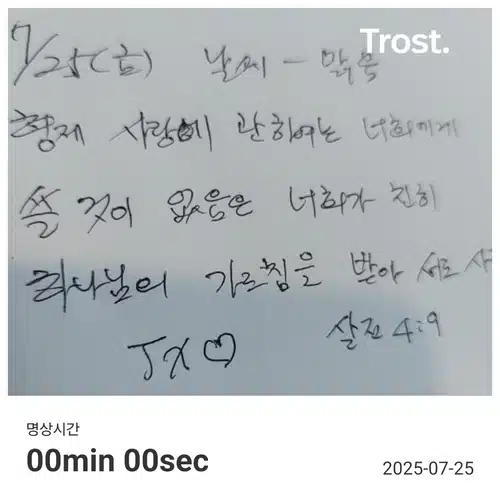 7/25(금) 날씨 - 맑음
Trost.
형제 사랑에 관하여는 너희에게
쓸 것이 없음은 너희가 친히
하나님의 가르침을 받아 서로 사
살전 4:9
JX♡
명상시간
00min 00sec
2025-07-25